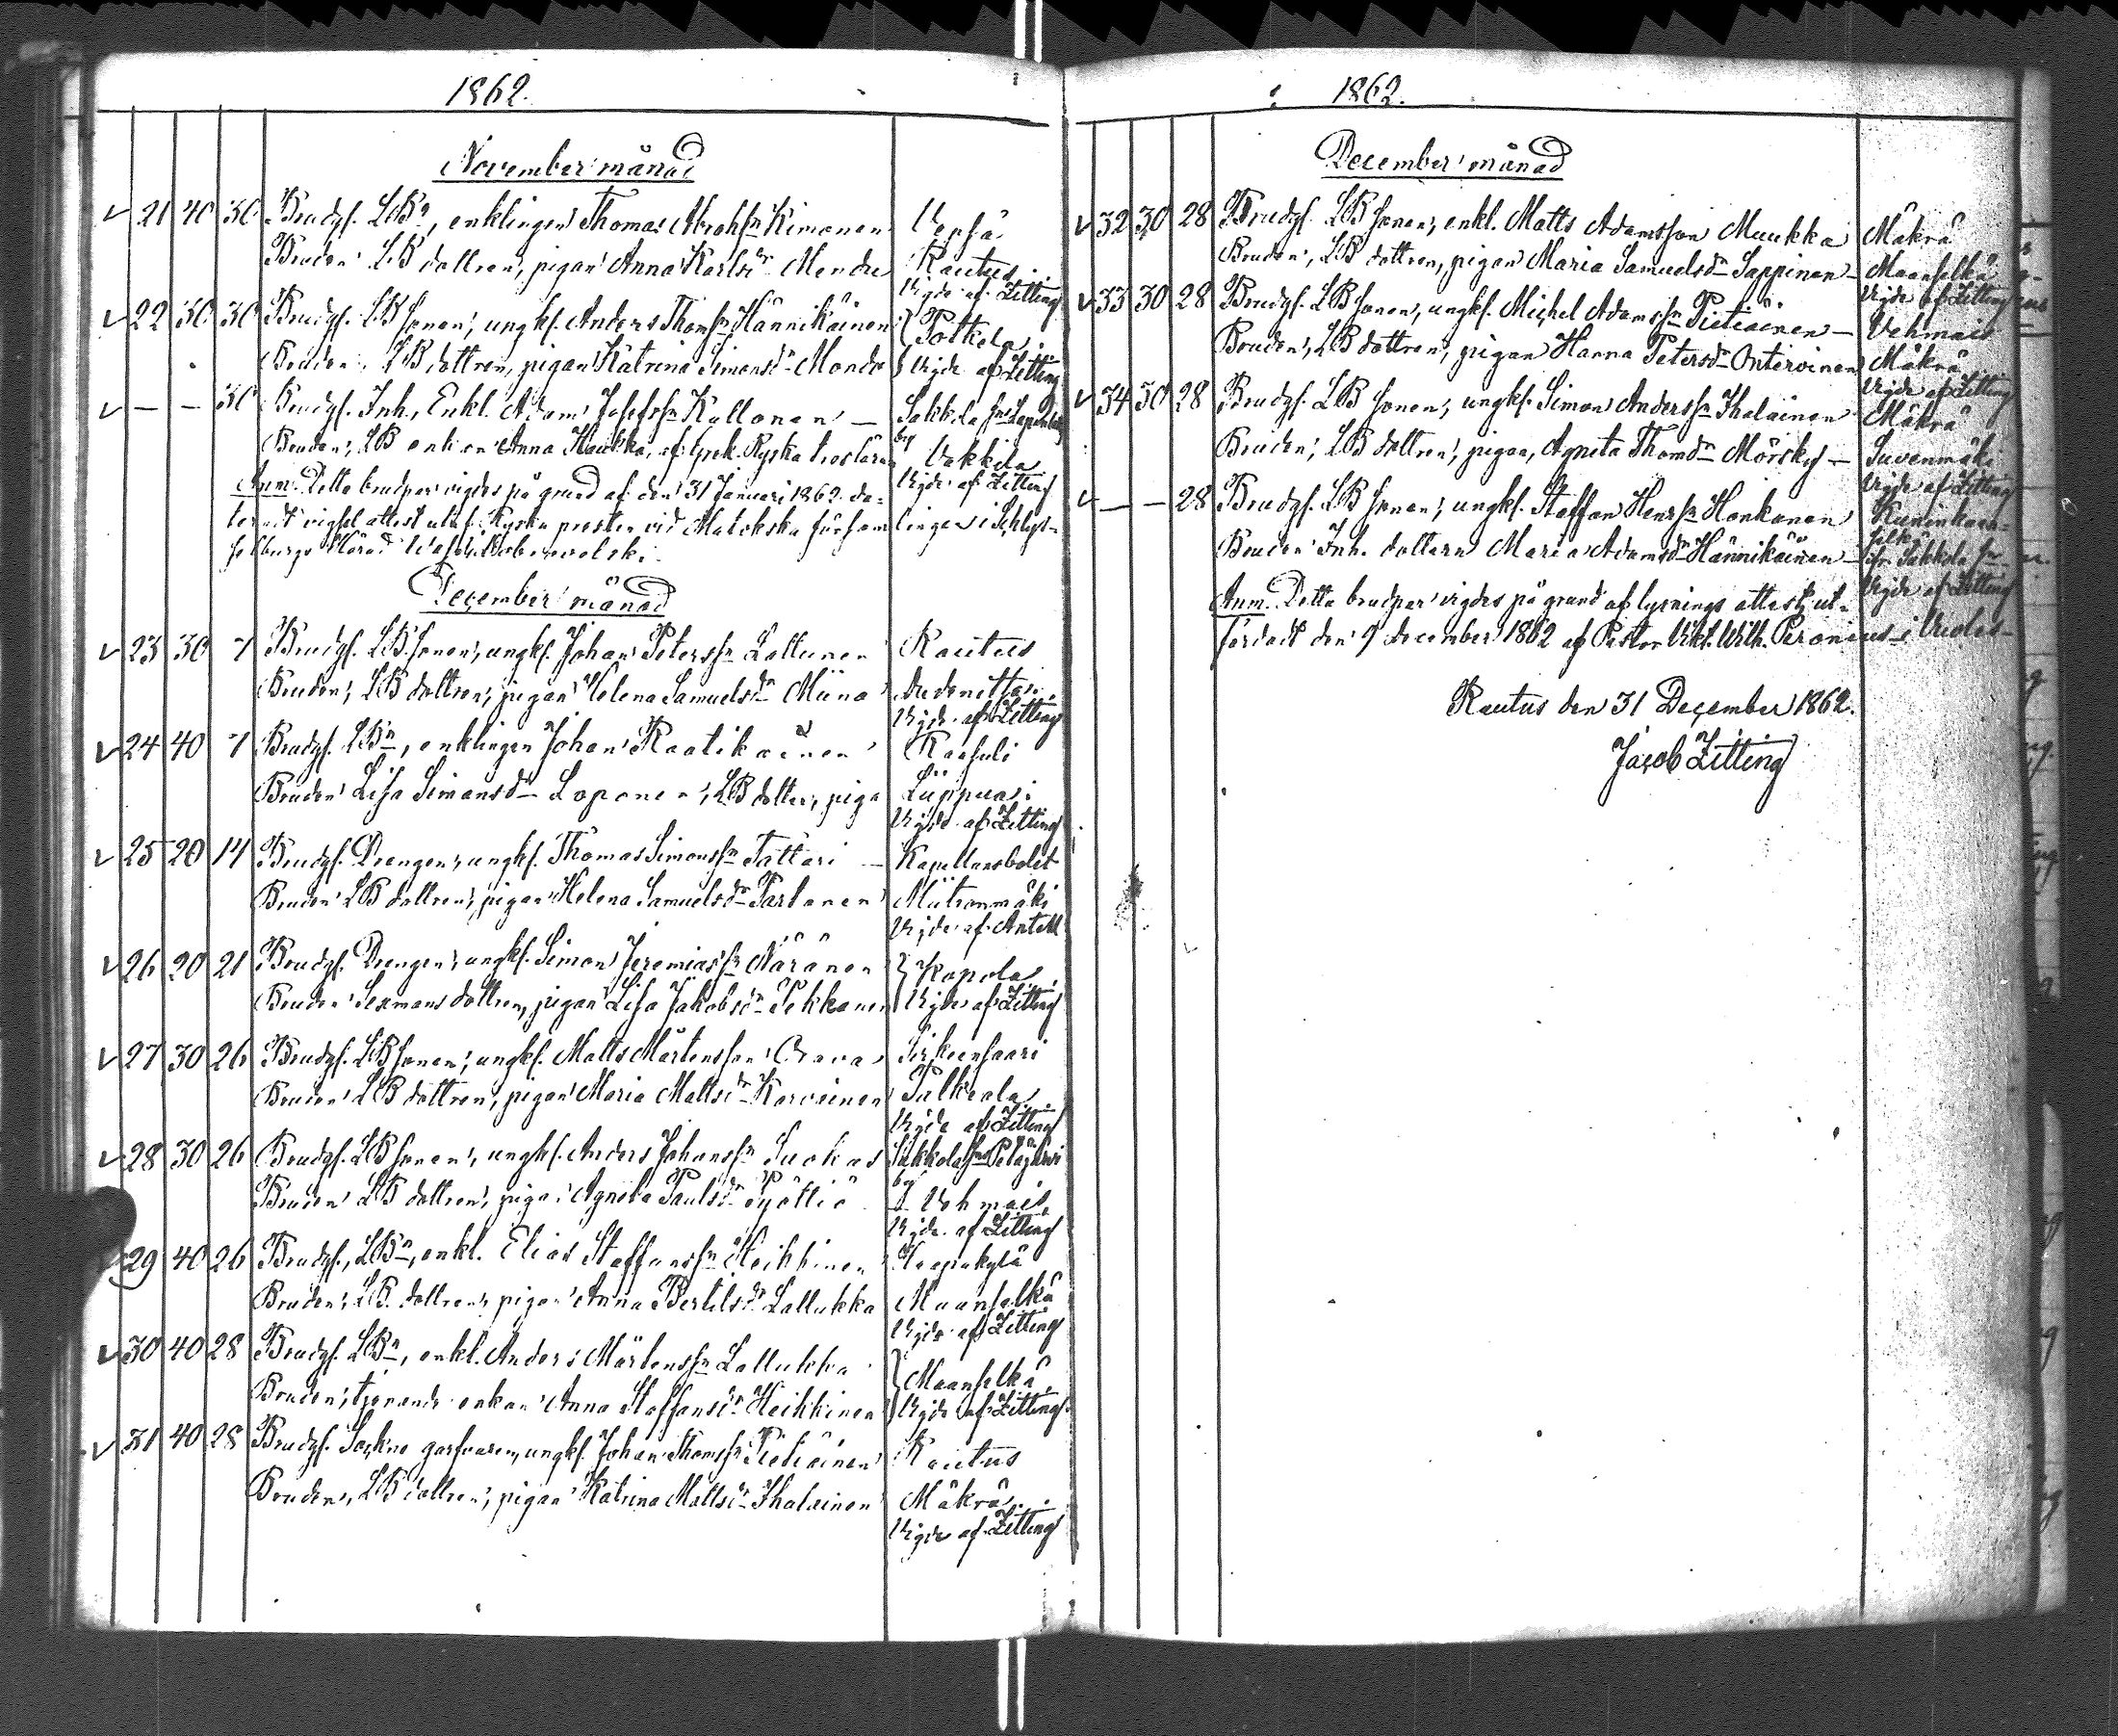 1862.
November månad
21 40 30 Brudgf. LBn, enklingen Thomas Abrahsn Kimonen
Bruden LB dottren, pigan Anna Karlsdr Mondu Rautus
Vigde af Zitting
22 30 30 Brudgf. LB sonen, ungkf. Anders Thomsn Hännikäinen Potkela
Bruden LB dottren, pigan Katrina Simonsdr Mondo Vigde af Zitting
— — 30 Brudgf. Inh. Enkl. Adam Josefssn Kullonen — Sakkola sn
Bruden, LB enkan Anna Haukka, af Grek. Ryska trosläran by Vakkila
Vigde af Zitting
Anm. Detta brudpar vigdes på grund af den 31 Januari 1862 da-
teradt vigsel attest utaf Ryska presten vid Matokska församlingen i Schlys-
selburgs Härad
December månad
23 30 7 Brudgf. LB sonen, ungkf. Johan Peterssn Lattunen Rautus
Bruden, LB dottren, pigan Helena Samuelsdr Miina
Vigde af Zitting
24 40 7 Brudgf. LBn, enklingen Johan Raatikainen Raasuli
Bruden Lisa Simonsdr Loponen, LB dotter, piga Liippua
Vigde af Zitting
25 20 14 Brudgf. Drengen, ungkf. Thomas Simonssn Tattari — Kapellansbolet
Bruden LB dottren, pigan Helena Samuelsdr Partanen
Vigde af Antell
26 20 21 Brudgf. Drengen, ungkf. Simon Jeremiassn Näränen Kopola
Bruden Sexmans dottren, pigan Lisa Jakobsdr Pekkanen Vigde af Zitting
27 30 26 Brudgf. LB sonen, ungkf. Matts Mårtensson Orava Sirkeensaari
Bruden LB dottren, pigan Maria Mattsdr Korvainen Palkeala
Vigde af Zitting
28 30 26 Brudgf. LB sonen, ungkf. Anders Johanssn Suokas Sakkola sn Petäjärvi
Bruden LB dottren, pigan Agneta Paulsdr Pyöttiö by Vehmais
Vigde af Zitting
29 40 26 Brudgf., LBn, enkl. Elias Staffanssn Heikkinen Haapakylä
Bruden, LB dottren, pigan Anna Bertilsdr Lallukka Maanselkä
Vigde af Zitting
30 40 28 Brudgf. LBn, enkl. Anders Mårtenssn Lallukka Maanselkä
Bruden, tjenande enkan Anna Staffansdr Heikkinen Vigde af Zitting
31 40 28 Brudgf. Sockne garfvaren, ungkf. Johan Thomssn Pietiäinen Rautus
Bruden, LB dottren, pigan Katrina Mattsdr Ihalainen Mäkrä
Vigde af Zitting
1862.
December månad
32 30 28 Brudgf. LB sonen, enkl. Matts Adamsson Muukka Mäkrä
Bruden, LB dottren, pigan Maria Samuelsdr Sappinen — Maanselkä
Vigde af Zitting
33 30 28 Brudgf. LB sonen, ungkf. Michel Adamssn Pietiäinen — Vehmais
Bruden, LB dottren, pigan Hanna Petersdr Ontervinen Mäkrä
Vigde af Zitting
34 30 28 Brudgf. LB sonen, ungkf. Simon Anderssn Ihalainen Mäkrä
Bruden, LB dottren, pigan, Agneta Thomdr Mörsky — Suvenmäki
Vigde af Zitting
— — 28 Brudgf. LB sonen, ungkf. Staffan Henrsn Honkanen
Bruden Inh. dottern Maria Adamsdr Hännikäinen — ifr. Sakkola sn
Vigde af Zitting
Anm. Detta brudpar vigdes på grund af lysnings attest ut-
färdadt den 9 december 1862 af Pastor Vikt. Wilh. Peronius i
Rautus den 31 December 1862.
Jacob Zitting